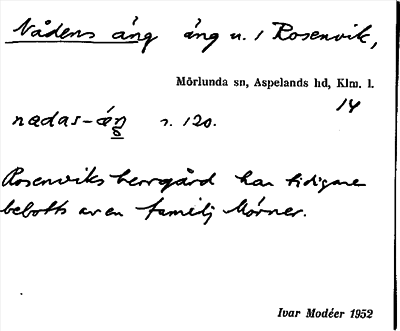 Nådens äng äng u. / Rosenvik,
Mörlunda sn, Aspelands hd, Klm. l.
14
nædas-æŋ s. 120.
Rosenviks herrgård har tidigare
bebotts av en familj Mörner.
Ivar Modéer 1952